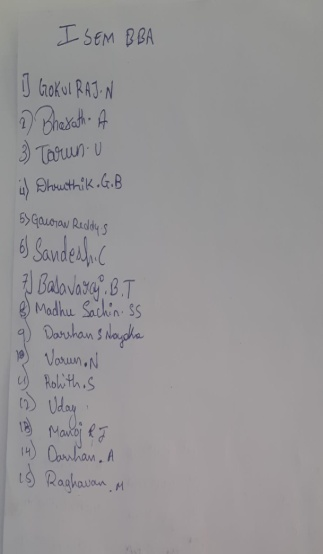 I SEM BBA
1) GOKUL RAJ. N
2) Bharath. A
3) Tarun. U
4) Dhruthik. G.B
5) Gaurav Reddy S
6) Sandesh. C
7) Basavaraj. B. T
8) Madhu Sachin. SS
9) Darshan S
10) Varun. N
11) Rohith. S
12) Uday
13) Manoj
14) Darshan. A
15) Raghavan. M